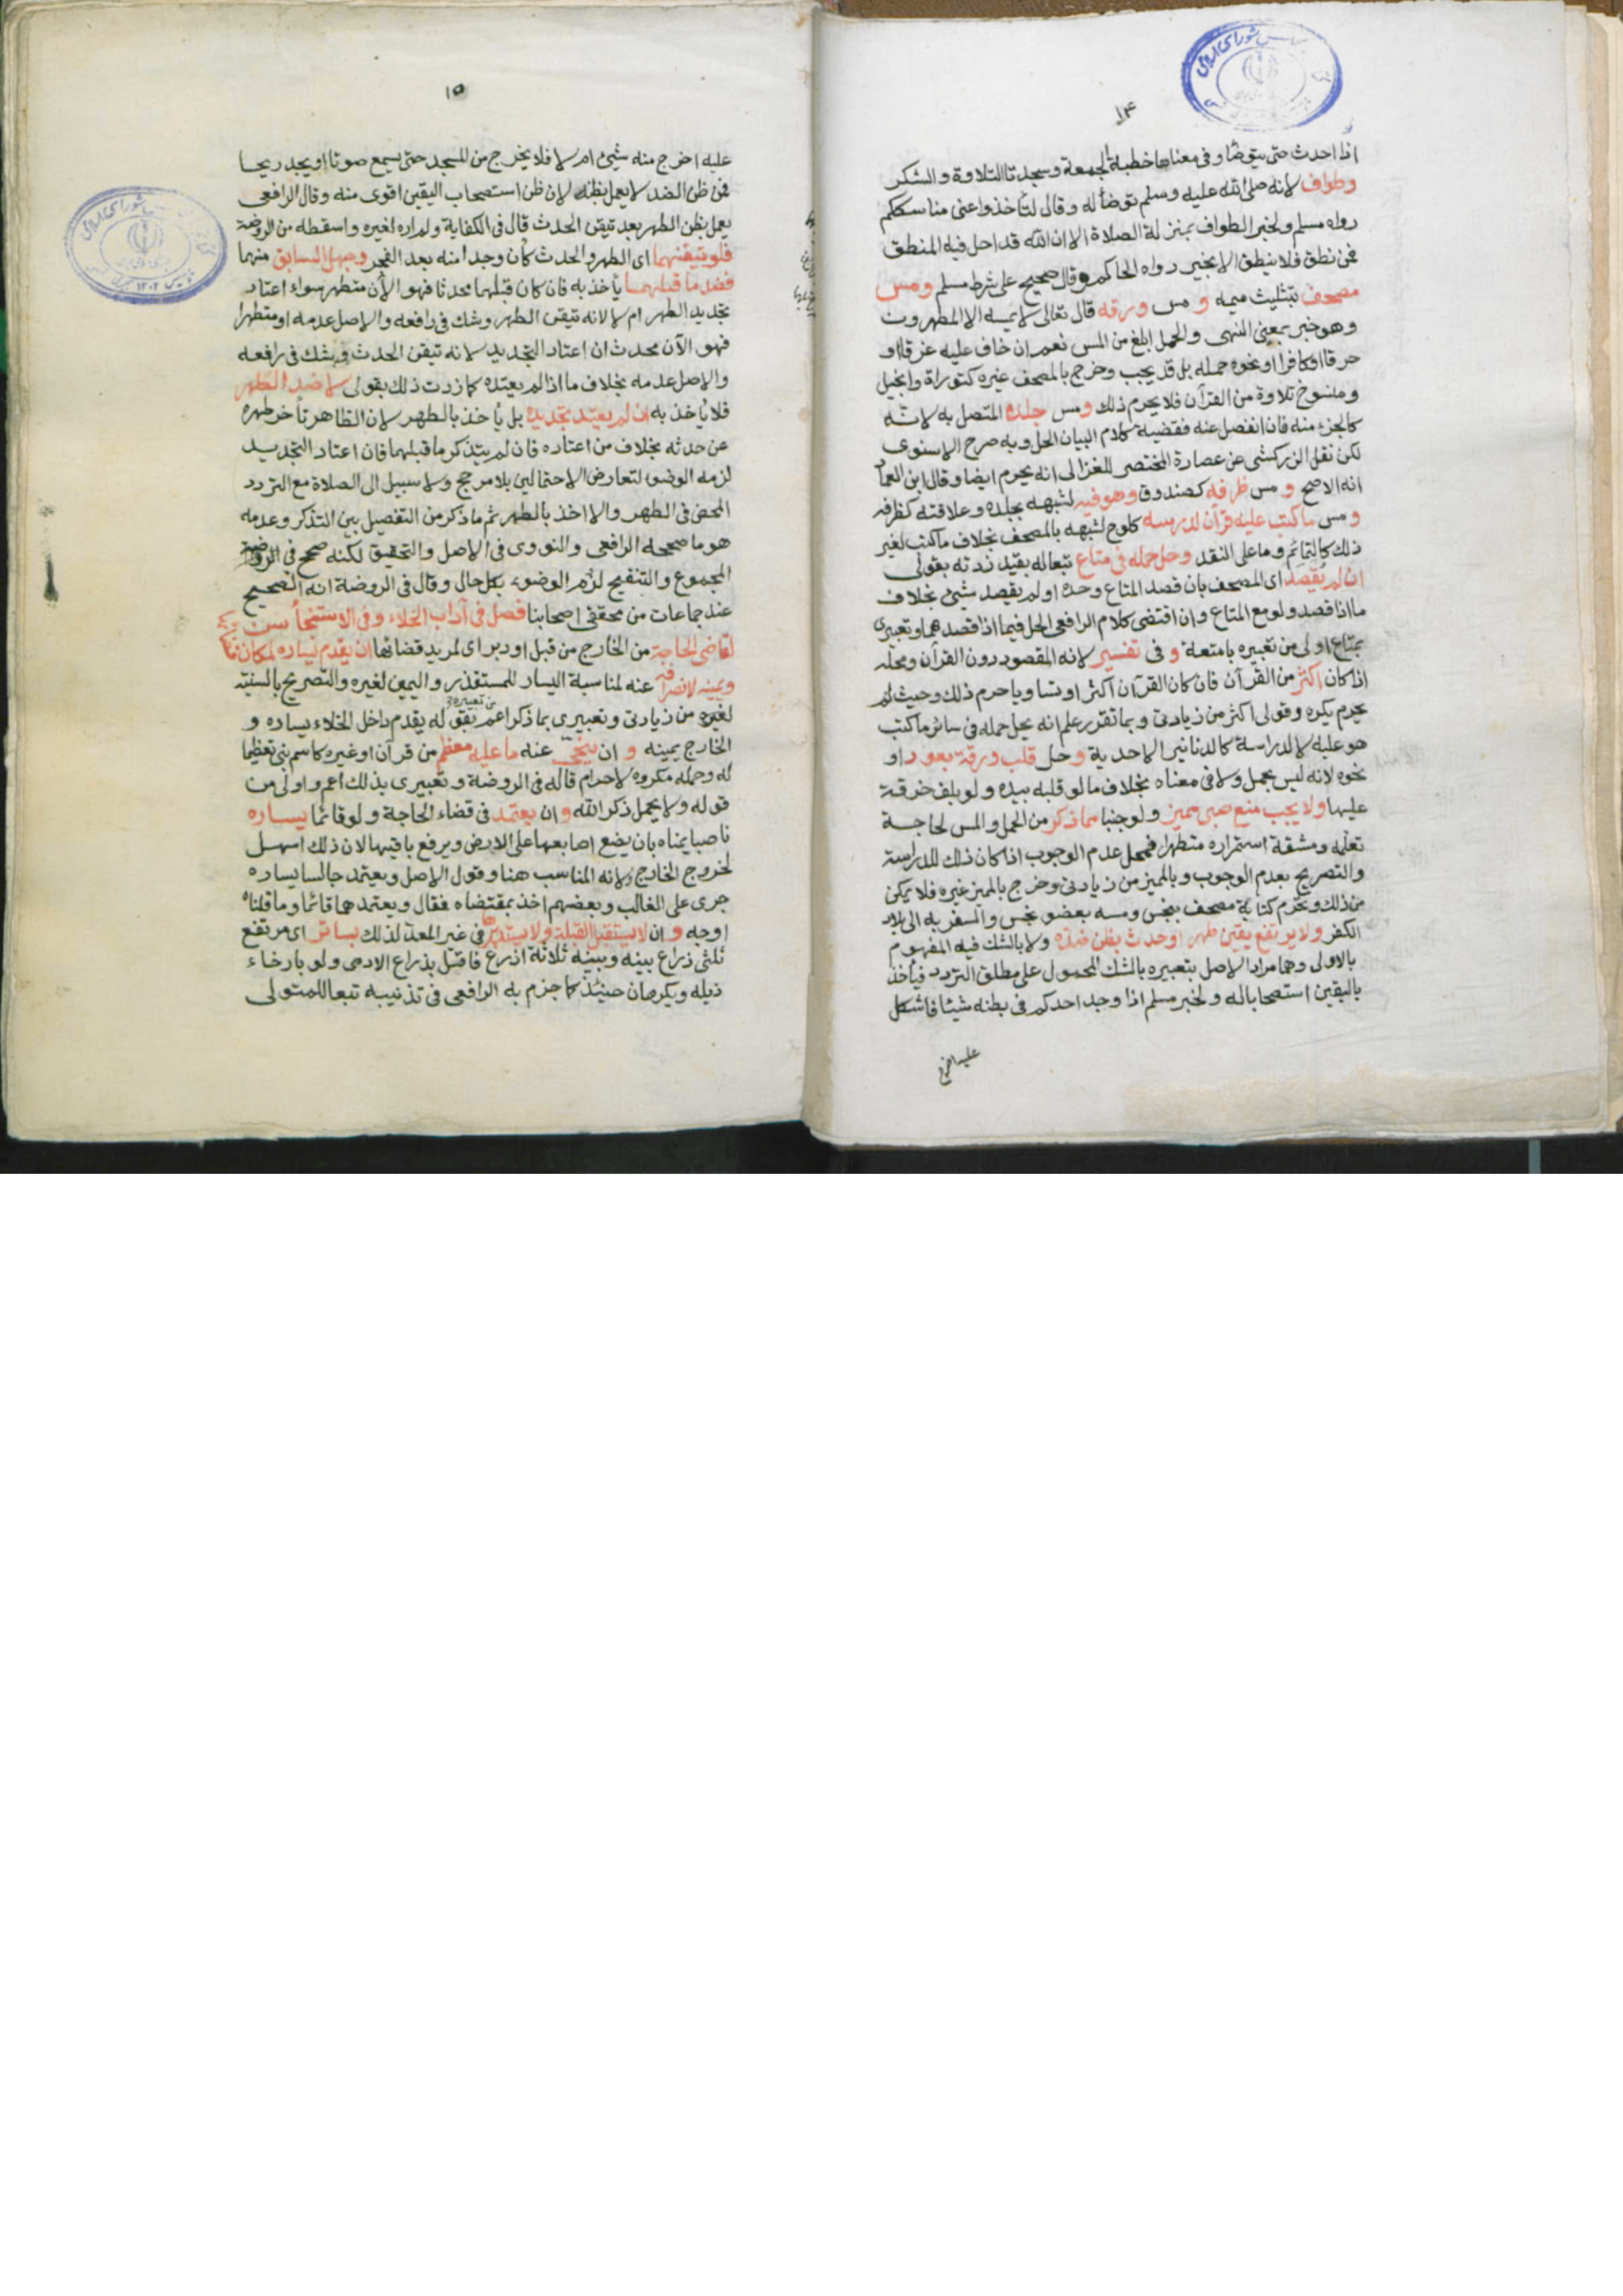 ١۴
اذا احدث حتى يتوضأ وفى معناها خطبة الجمعة وسجدتا التلاوة والشكر
وطواف لانه صلى الله عليه وسلم توضأ له وقال لتأخذوا عنى مناسككم
رواه مسلم ولخبر الطواف بمنزلة الصلاة الا ان الله قد احل فيه المنطق
فمن نطق فلا ينطق الا بخير رواه الحاكم وقال صحيح على شرط مسلم ومس
مصحف بتثليث ميمه و مس ورقه قال تعالى لا يمسه الا المطهرون
وهو خبر بمعنى النهى والحمل ابلغ من المس نعم ان خاف عليه غرقا او
حرقا او كافرا او نحوه حمله بل قد يجب وخرج بالمصحف غيره كتوراة وانجيل
ومنسوخ تلاوة من القرآن فلا يحرم ذلك و مس جلده المتصل به لانه
كالجزء منه فان انفصل عنه فقضية كلام البيان الحل وبه صرح الاسنوى
لكن نقل الزركشى عن عصارة المختصر للغزالى انه يحرم ايضا وقال ابن العماد
انه الاصح و مس ظرفه كصندوق وهو فيه لشبهه بجلده وعلاقته كظرفه
و مس ما كتب عليه قرآن لدرسه كلوح لشبهه بالمصحف بخلاف ما كتب لغير
ذلك كالتمائم وما على النقد وحل حمله فى متاع تبعا له بقيد زدته بقولى
ان لم يقصد اى المصحف بان قصد المتاع وحده او لم يقصد شيئ بخلاف
ما اذا قصد ولو مع المتاع وان اقتضى كلام الرافعى الحل فيما اذا قصدهما وتعبيرى
بمتاع اولى من تعبيره بامتعة و فى تفسير لانه المقصود دون القرآن ومحله
اذا كان اكثر من القرآن فان كان القرآن اكثر او تساويا حرم ذلك وحيث لم
يحرم يكره وقولى اكثر من زيادتى وبما تقرر علم انه يحل حمله فى سائر ما كتب
هو عليه لا لدراسة كالدنانير الاحدية و حل قلب ورقة بعود او
نحوه لانه ليس بحمل ولا فى معناه بخلاف ما لو قلبه بيده ولو بلف خرقة
عليها ولا يجب منع صبى مميز ولو جنبا مما ذكر من الحمل والمس لحاجة
تعلمه ومشقة استمراره متطهرا فمحل عدم الوجوب اذا كان ذلك للدراسة
والتصريح بعدم الوجوب وبالمميز من زيادتى وخرج بالمميز غيره فلا يمكن
من ذلك ويحرم كتابة مصحف بنجس ومسه بعضو نجس والسفر به الى بلاد
الكفر ولا يرتفع يقين طهر او حدث بظن ضده ولا بالشك فيه المفهوم
بالاولى وهما مراد الاصل بتعبيره بالشك المحمول على مطلق التردد فيأخذ
باليقين استصحابا له ولخبر مسلم اذا وجد احدكم فى بطنه شيئا فاشكل
عليه اخرج
١٥
عليه اخرج منه شيئ ام لا فلا يخرج من المسجد حتى يسمع صوتا او يجد ريحا
فمن ظن الضد لا يعمل بظنه لان ظن استصحاب اليقين اقوى منه وقال الرافعى
يعمل بظن الطهر بعد تيقن الحدث قال فى الكفاية ولم اره لغيره واسقطه من الروضة
فلو تيقنهما اى الطهر والحدث كأن وجدا منه بعد الفجر وجهل السابق منهما
فضد ما قبلهما يأخذ به فان كان قبلهما محدثا فهو الآن متطهر سواء اعتاد
تجديد الطهر ام لا لانه تيقن الطهر وشك فى رافعه والاصل عدمه او متطهرا
فهو الآن محدث ان اعتاد التجديد لانه تيقن الحدث وشك فى رافعه
والاصل عدمه بخلاف ما اذا لم يعتده كما زدت ذلك بقولى لا ضد الطهر
فلا يأخذ به ان لم يعتد تجديده بل يأخذ بالطهر لان الظاهر تأخر طهره
عن حدثه بخلاف من اعتاده فان لم يتذكر ما قبلهما فان اعتاد التجديد
لزمه الوضوء لتعارض الاحتمالين بلا مرجح ولا سبيل الى الصلاة مع التردد
المحض فى الطهر والا اخذ بالطهر ثم ما ذكر من التفصيل بين التذكر وعدمه
هو ما صححه الرافعى والنووى فى الاصل والتحقيق لكنه صحح فى الروضة
المجموع والتنقيح لزوم الوضوء بكل حال وقال فى الروضة انه الصحيح
عند جماعات من محققى اصحابنا فصل فى آداب الخلاء وفى الاستنجا سن
لقاضى الحاجة من الخارج من قبل او دبر اى لمريد قضائها ان يقدم يساره لمكان قضا
ويمينه لانصرافه عنه لمناسبة اليسار للمستقذر واليمين لغيره والتصريح بالسنية
لغيره من زيادتى وتعبيرى بما ذكر اعم من تعبيره بقوله يقدم داخل الخلاء يساره و
الخارج يمينه و ان ينحى عنه ما عليه معظم من قرآن او غيره كاسم نبى تعظيما
له وحمله مكروه لا حرام قاله فى الروضة وتعبيرى بذلك اعم واولى من
قوله ولا يحمل ذكر الله و ان يعتمد فى قضاء الحاجة ولو قائما يساره
ناصبا يمناه بان يضع اصابعها على الارض ويرفع باقيها لان ذلك اسهل
لخروج الخارج ولانه المناسب هنا وقول الاصل ويعتمد جالسا يساره
جرى على الغالب وبعضهم اخذ بمقتضاه فقال ويعتمدهما قائما وما قلناه
اوجه و ان لا يستقبل القبلة ولا يستدبرها فى غير المعد لذلك بساتر اى مرتفع
ثلثى ذراع بينه وبينه ثلاثة اذرع فاقل بذراع الادمى ولو بارخاء
ذيله ويكرهان حينئذ كما جزم به الرافعى فى تذنيبه تبعا للمتولى